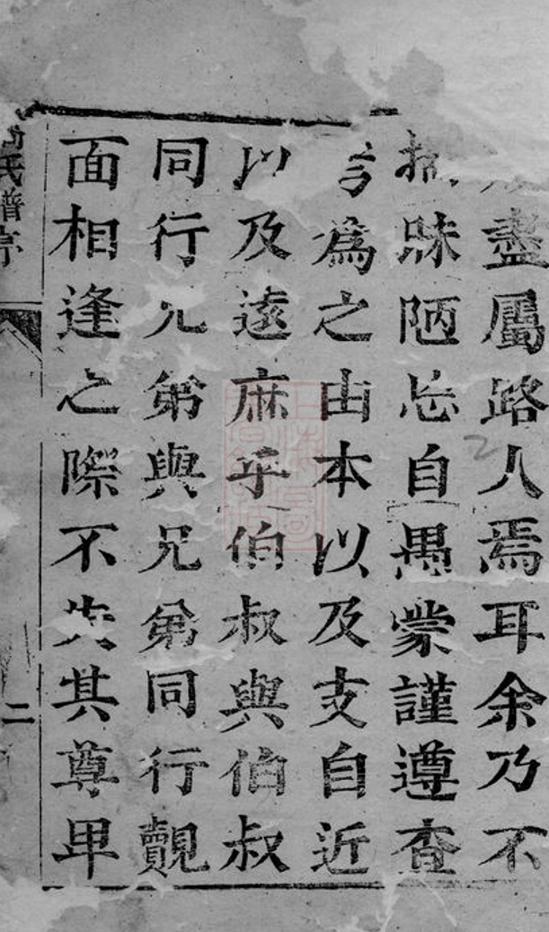 盡屬路人焉耳余乃不
揣昧陋忘自愚蒙謹遵查
爲之由本以及支自近
以及遠庶乎伯叔與伯叔
同行兄弟與兄弟同行覿
面相逢之際不失其尊卑
氏譜序
二